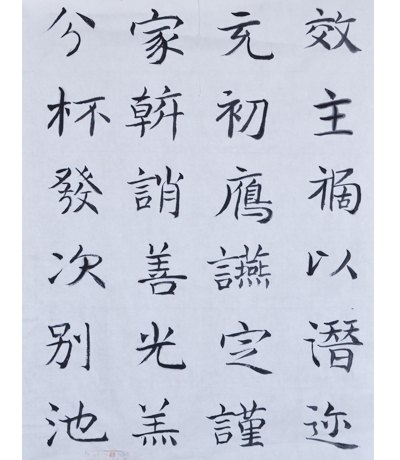 效主以潛迹
初鷹讌定謹
家幹誚善光羔
分杯發次别池